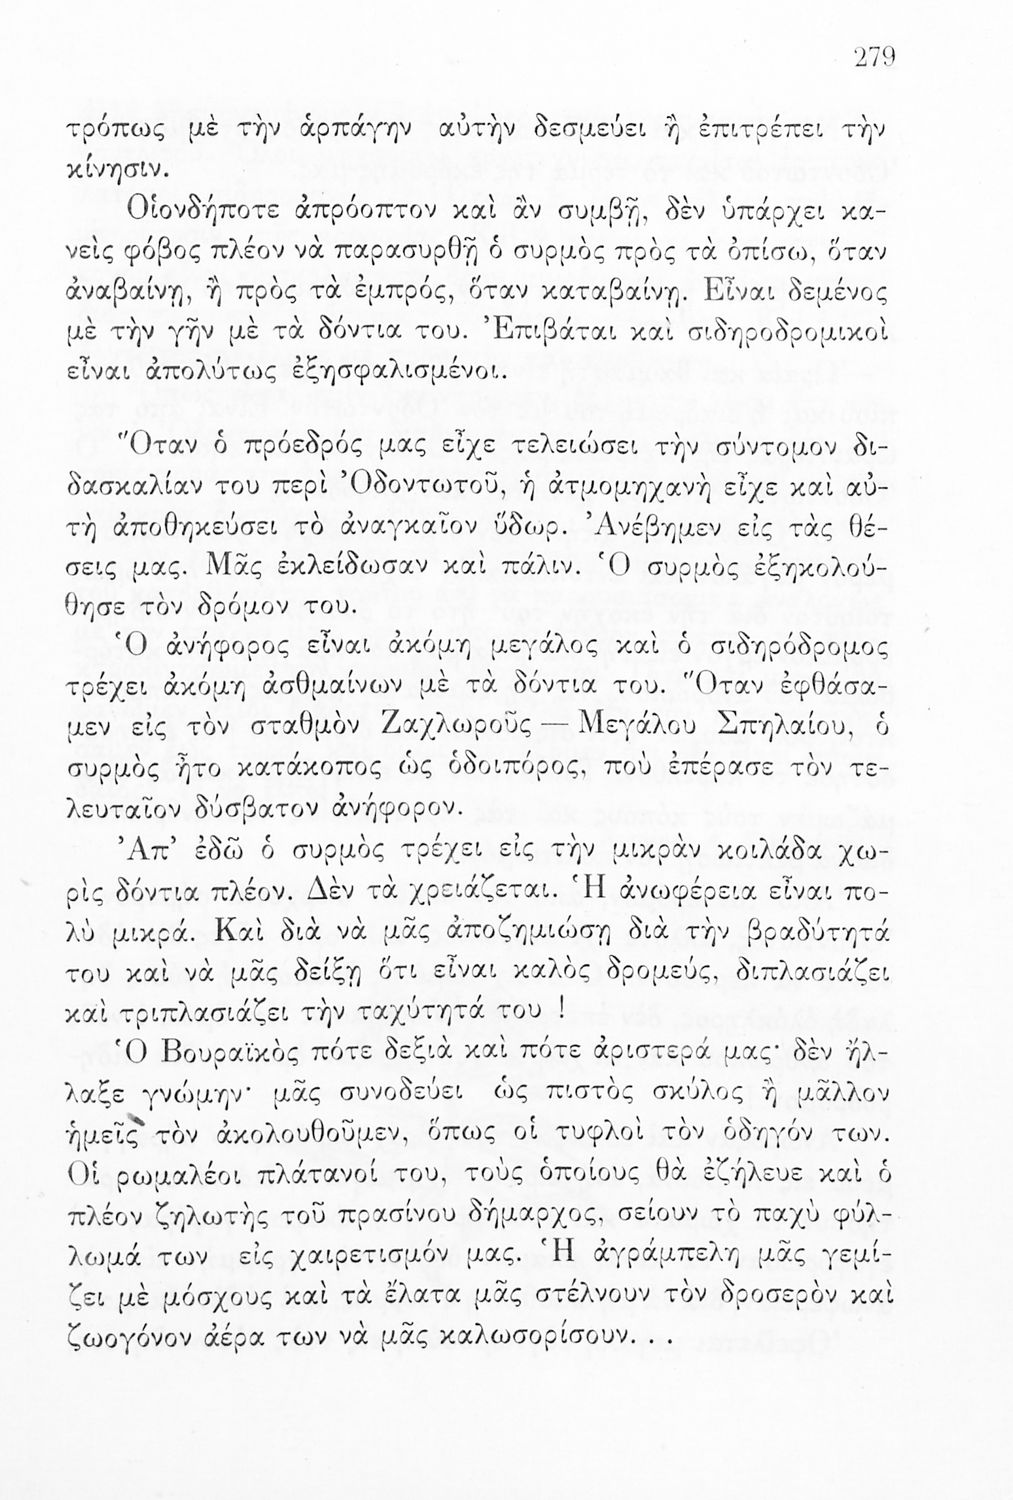 279
τρόπως μὲ τὴν ἁρπάγην αὐτὴν δεσμεύει ἢ ἐπιτρέπει τὴν
κίνησιν.
Οἱονδήποτε ἀπρόοπτον καὶ ἂν συμβῇ, δὲν ὑπάρχει κα-
νεὶς φόβος πλέον νὰ παρασυρθῇ ὁ συρμὸς πρὸς τὰ ὀπίσω, ὅταν
ἀναβαίνῃ, ἢ πρὸς τὰ ἐμπρός, ὅταν καταβαίνῃ. Εἶναι δεμένος
μὲ τὴν γῆν μὲ τὰ δόντια του. Ἐπιβάται καὶ σιδηροδρομικοὶ
εἶναι ἀπολύτως ἐξησφαλισμένοι.
Ὅταν ὁ πρόεδρός μας εἶχε τελειώσει τὴν σύντομον δι-
δασκαλίαν του περὶ Ὀδοντωτοῦ, ἡ ἀτμομηχανὴ εἶχε καὶ αὐ-
τὴ ἀποθηκεύσει τὸ ἀναγκαῖον ὕδωρ. Ἀνέβημεν εἰς τὰς θέ-
σεις μας. Μᾶς ἐκλείδωσαν καὶ πάλιν. Ὁ συρμὸς ἐξηκολού-
θησε τὸν δρόμον του.
Ὁ ἀνήφορος εἶναι ἀκόμη μεγάλος καὶ ὁ σιδηρόδρομος
τρέχει ἀκόμη ἀσθμαίνων μὲ τὰ δόντια του. Ὅταν ἐφθάσα-
μεν εἰς τὸν σταθμὸν Ζαχλωροῦς — Μεγάλου Σπηλαίου, ὁ
συρμὸς ἦτο κατάκοπος ὡς ὁδοιπόρος, ποὺ ἐπέρασε τὸν τε-
λευταῖον δύσβατον ἀνήφορον.
Ἀπ’ ἐδῶ ὁ συρμὸς τρέχει εἰς τὴν μικρὰν κοιλάδα χω-
ρὶς δόντια πλέον. Δὲν τὰ χρειάζεται. Ἡ ἀνωφέρεια εἶναι πο-
λὺ μικρά. Καὶ διὰ νὰ μᾶς ἀποζημιώσῃ διὰ τὴν βραδύτητά
του καὶ νὰ μᾶς δείξῃ ὅτι εἶναι καλὸς δρομεύς, διπλασιάζει
καὶ τριπλασιάζει τὴν ταχύτητά του !
Ὁ Βουραϊκὸς πότε δεξιὰ καὶ πότε ἀριστερά μας· δὲν ἤλ-
λαξε γνώμην· μᾶς συνοδεύει ὡς πιστὸς σκύλος ἢ μᾶλλον
ἡμεῖς τὸν ἀκολουθοῦμεν, ὅπως οἱ τυφλοὶ τὸν ὁδηγόν των.
Οἱ ρωμαλέοι πλάτανοί του, τοὺς ὁποίους θὰ ἐζήλευε καὶ ὁ
πλέον ζηλωτὴς τοῦ πρασίνου δήμαρχος, σείουν τὸ παχὺ φύλ-
λωμά των εἰς χαιρετισμόν μας. Ἡ ἀγράμπελη μᾶς γεμί-
ζει μὲ μόσχους καὶ τὰ ἔλατα μᾶς στέλνουν τὸν δροσερὸν καὶ
ζωογόνον ἀέρα των νὰ μᾶς καλωσορίσουν. . .